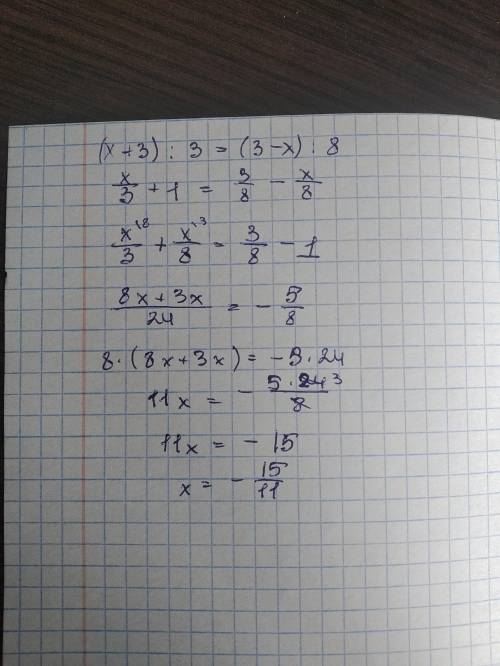 (x+3) : 3 = (3-x) : 8
x/3 + 1 = 3/8 - x/8
x\8/3 + x\3/8 = 3/8 - 1
8x+3x/24 = - 5/8
8·(8x+3x) = -5·24
11x = - 5·24 3/8
11x = - 15
x = - 15/11